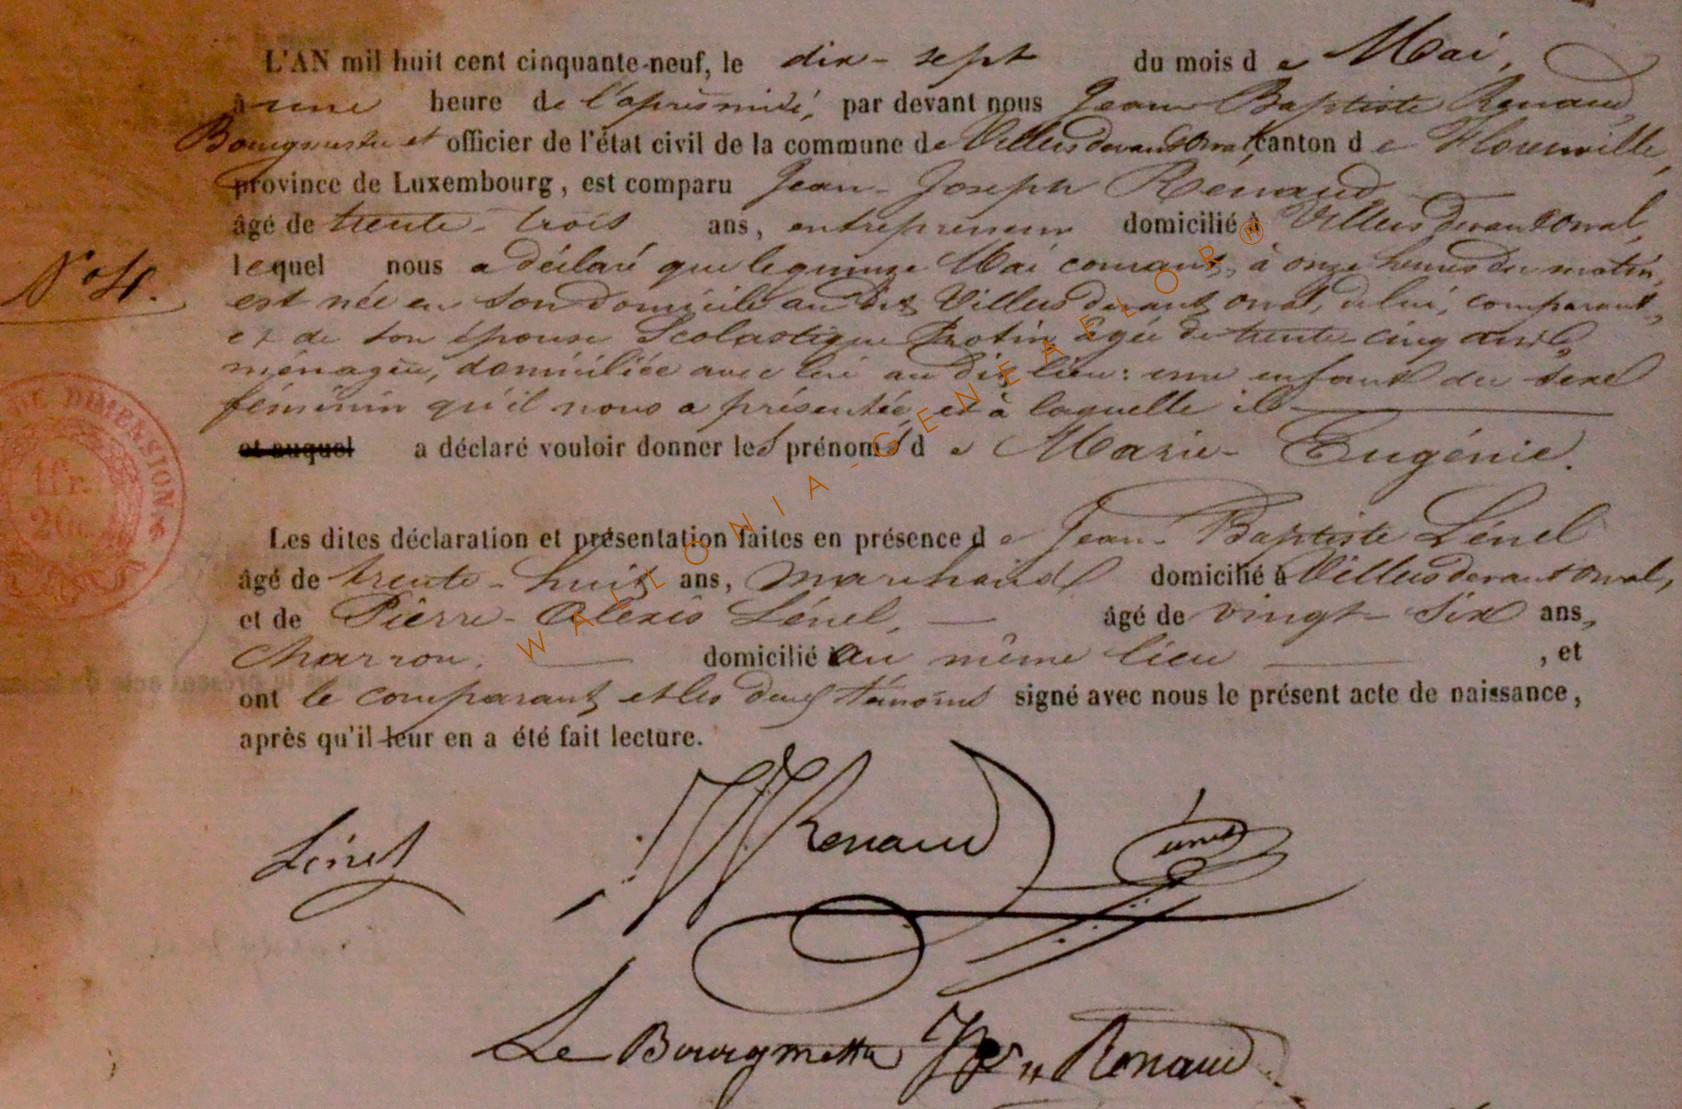 L'AN mil huit cent cinquante-neuf, le dix-sept du mois de Mai,
à une heure de l'après midi, par devant nous Jean Baptiste Renaud,
Bourgmestre et officier de l'état civil de la commune de Villers devant Orval, canton de Florenville,
province de Luxembourg, est comparu Jean-Joseph Renaud
âgé de trente-trois ans, entrepreneur domicilié à Villers devant Orval,
N° 4.
lequel nous a déclaré que le quinze Mai courant, à onze heures du matin,
est née en son domicile au dit Villers devant Orval, de lui, comparant,
et de son épouse Scolastique âgée de trente-cinq ans,
ménagère, domiciliée avec lui au dit lieu: une enfant du sexe
féminin qu'il nous a présentée, et à laquelle il
et auquel a déclaré vouloir donner les prénoms de Marie-Eugénie.
DE DIMENSION
1 fr.
20c.
Les dites déclaration et présentation faites en présence de Jean-Baptiste Lénel
âgé de trente-huit ans, marchand domicilié à Villers devant Orval,
et de Pierre-Alexis Lénel, âgé de vingt-six ans,
charron, domicilié au même lieu, et
ont le comparant et les deux témoins signé avec nous le présent acte de naissance,
après qu'il leur en a été fait lecture.
Lénel JJRenaud Lénel
Le Bourgmestre JBte Renaud
WALLONIA-GENEAFLOR®